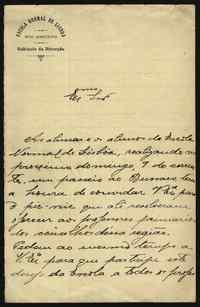 ESCOLA NORMAL DE LISBOA
Gabinete da Direcção
Exmo
Sr.
As alumnas e o alumno da Escola
Normal de Lisboa, realizando no
proximo domingo, 7 do corren
te, um passeio ao Bussaco tem
a honra de convidar V. Exa para
o pic-nic que ali realisam e
offerecem aos professores primarios
dos concelhos desta região.
Pedem ao mesmo tempo a
V. Exa para que participe este
desejo da Escola a todos os profes